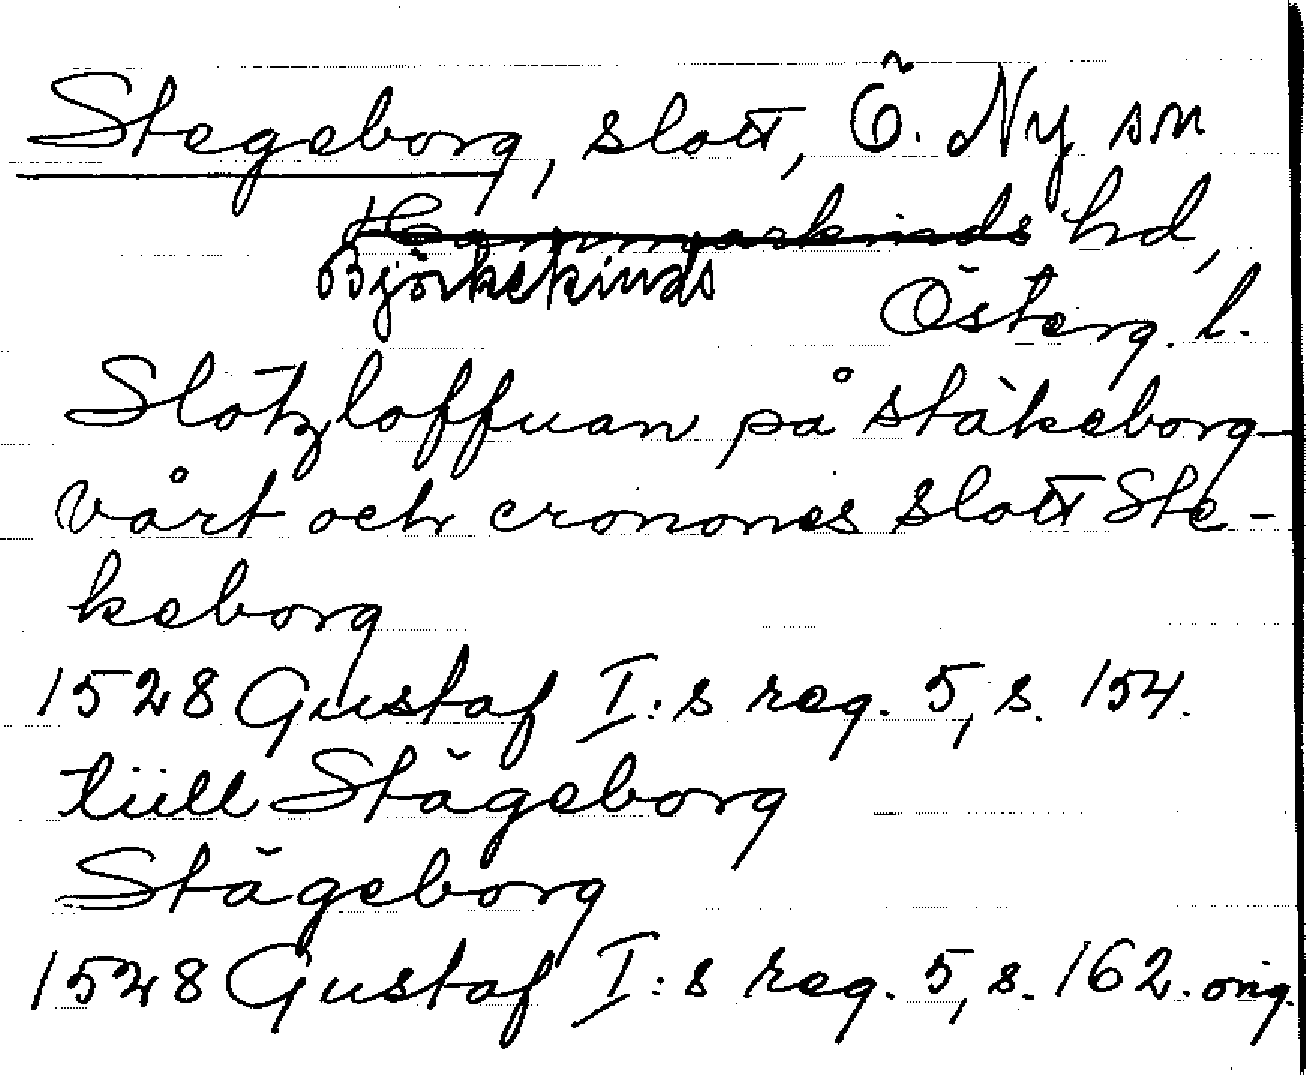 Stegeborg, slott, Ö. Ny sn
Hammarkinds hd,
Björkekinds
Österg. l.
Slotzloffuan på stäkeborg
vårt och cronones slott Ste-
keborg
1528 Gustaf I:s reg. 5, s. 154.
tüll Stägeborg
Stägeborg
1528 Gustaf I:s reg. 5, s. 162. orig.